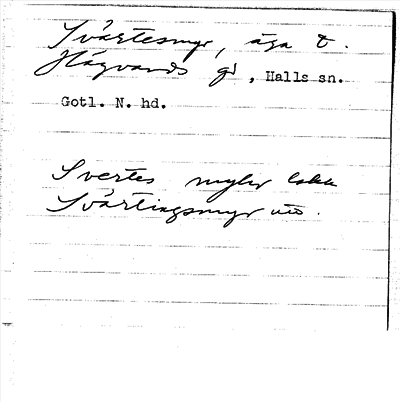 Svärtesmyr, äga t.
Hägvards gd, Halls sn.
Gotl. N. hd.
Svertes myhr
Svärtingsmyr